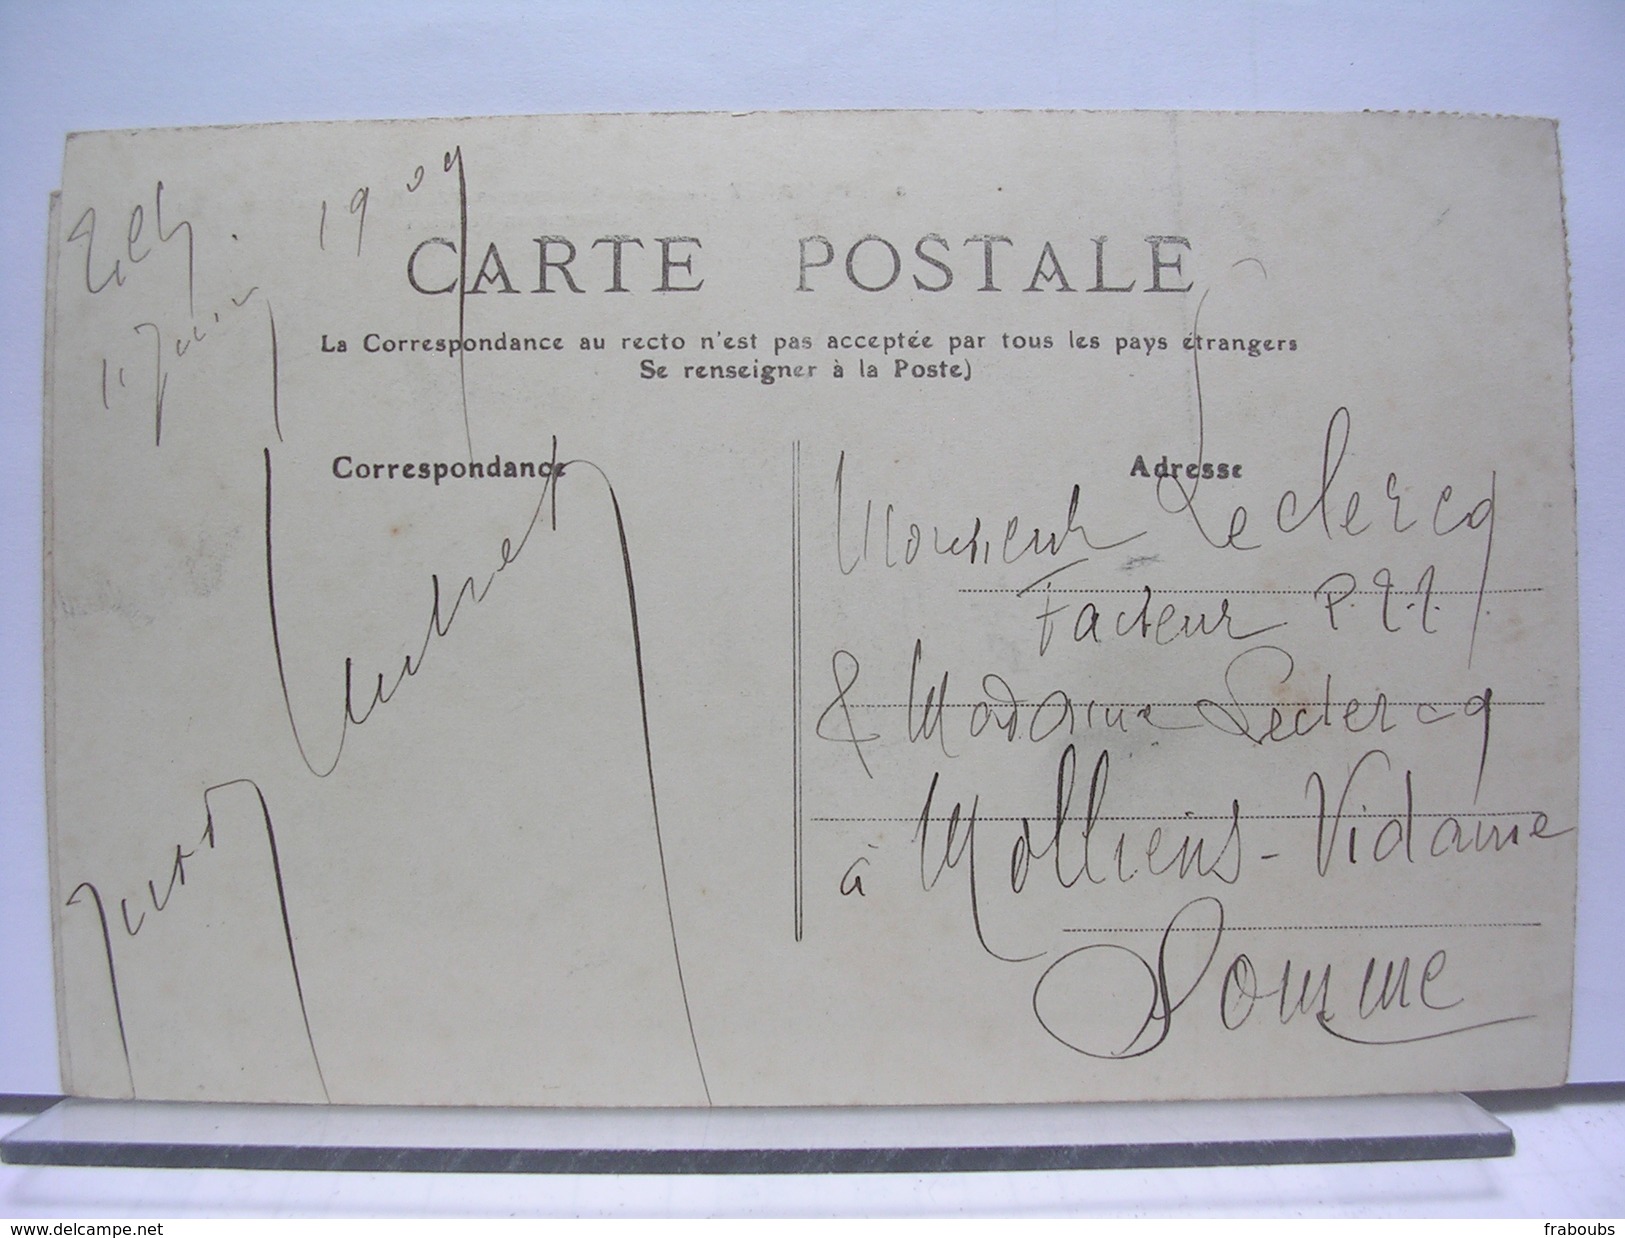 1909
CARTE POSTALE
La Correspondance au recto n'est pas acceptée par tous les pays étrangers
Se renseigner à la Poste)
Correspondance
Adresse
Monsieur Leclercq
Facteur P.T.T.
& Madame Leclercq
à Molliens-Vidame
Somme
www.delcampe.net
fraboubs